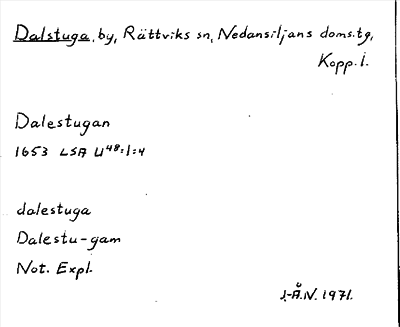 Dalstuga, by, Rättviks sn, Nedansiljans doms.tg,
Kopp. l.
Dalestugan
1653 LSA U48:1:4
dalestuga
Dalestu-gam
Not. Expl.
J-Å.N. 1971.